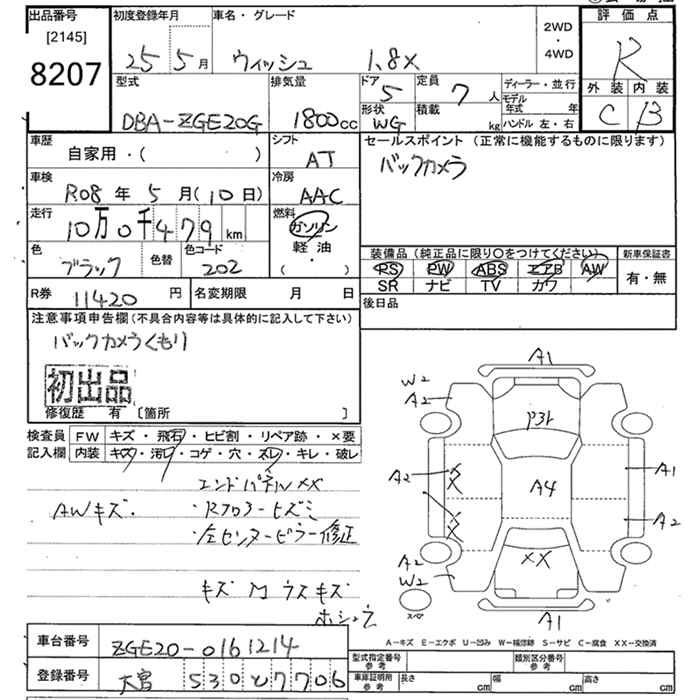 出品番号 初度登録年月 車名・グレード 評価点
[2145] 2WD・4WD
8207 25 5月 ウィッシュ 1.8X R
型式 排気量 ドア 5 定員 7人 ディーラー・並行 外装 内装
DBA-ZGE20G 1800cc 形状 WG 積載 kg モデル年式 年 ハンドル 左・右 C B
車歴 シフト セールスポイント (正常に機能するものに限ります)
自家用・( ) AT バックカメラ
車検 冷房
R08年 5月(10日) AAC
走行 燃料
10万0千479km ガソリン
色 色替 色コード 軽油 装備品 (純正品に限り〇をつけてください) 新車保証書
ブラック 202 ・( ) PS PW ABS エアB AW 有・無
SR ナビ TV カワ
R券 11420円 名変期限 月 日 後日品
注意事項申告欄(不具合内容等は具体的に記入して下さい)
バックカメラくもり
初出品
修復歴 有 [箇所 ]
検査員 FW キズ・飛石・ヒビ割・リペア跡・×要
記入欄 内装 キズ・汚レ・コゲ・穴・スレ・キレ・破レ
エンドパネルXX
AWキズ ・Rフロアーヒズミ
・左センターピラー修正
キズ M ウスキズ
A1
W2
A2
P31
A2 XX A4 A1
XX A2
A2
W2 XX
スペア A1
A-キズ E-エクボ U-凹み W-補修跡 S-サビ C-腐食 XX-交換済
車台番号 ZGE20-0161214
型式指定番号 参考 類別区分番号 参考
登録番号 大宮 530 7706
車庫証明用 参考 長さ cm 幅 cm 高さ cm